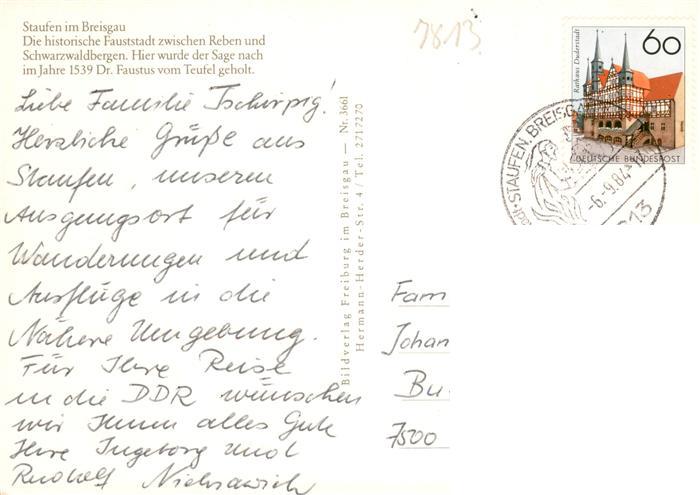 Staufen im Breisgau
Die historische Fauststadt zwischen Reben und
Schwarzwaldbergen. Hier wurde der Sage nach
im Jahre 1539 Dr. Faustus vom Teufel geholt.
7813
60
Rathaus Duderstadt
DEUTSCHE BUNDESPOST
STAUFEN, BREISGA
-6.-9.84-17
Liebe Familie Tschirpig!
Herzliche Grüße aus
Staufen, unseren
Ausgangsort für
Wanderungen und
Ausflüge in die
Nähere Umgebung.
Für Ihre Reise
in die DDR wünschen
wir Ihnen alles Gute
Ihre Ingeborg und
Rudolf
Bildverlag Freiburg im Breisgau — Nr. 3661
Hermann-Herder-Str. 4 / Tel. 2717270
Fam
Johan
Bu
7500